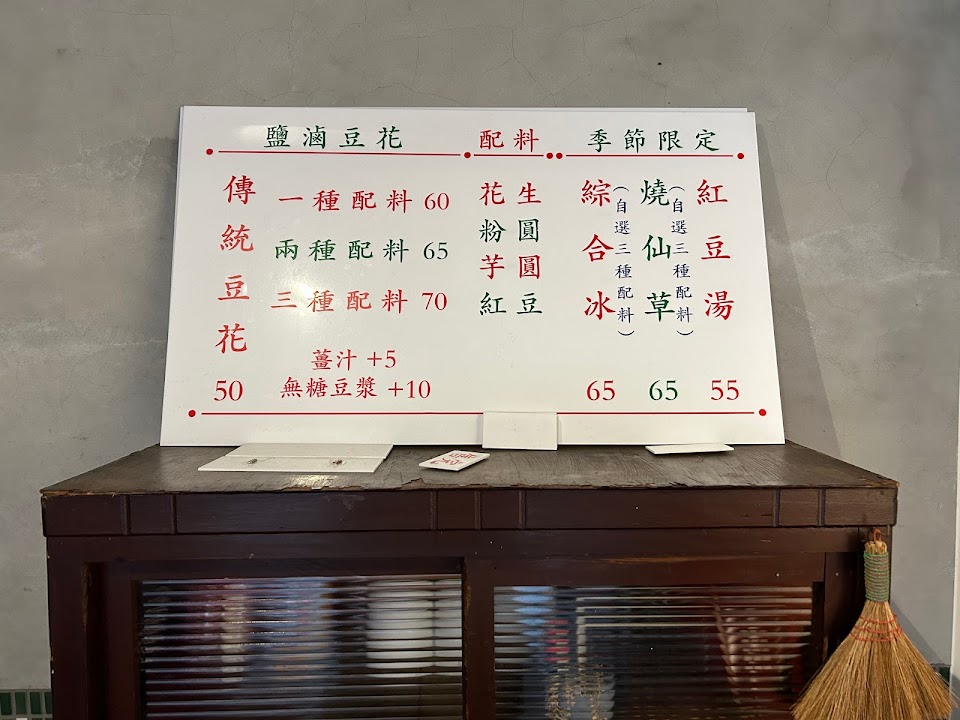 鹽滷豆花
傳統豆花
50
一種配料 60
兩種配料 65
三種配料 70
薑汁 +5
無糖豆漿 +10
配料
花生
粉圓
芋圓
紅豆
季節限定
綜合冰
(自選三種配料)
65
燒仙草
(自選三種配料)
65
紅豆湯
55